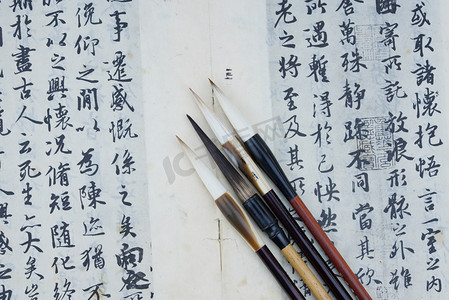 或取諸懷抱悟言一室之內
寄所託放浪形骸之外雖
萬殊靜躁不同當其欣
所遇暫得於己快然
老之將至及其所
事遷感慨係之矣向之
俛仰之閒以為陳迹猶不
不以之興懷況脩短隨化終
期於盡古人云死生亦大矣